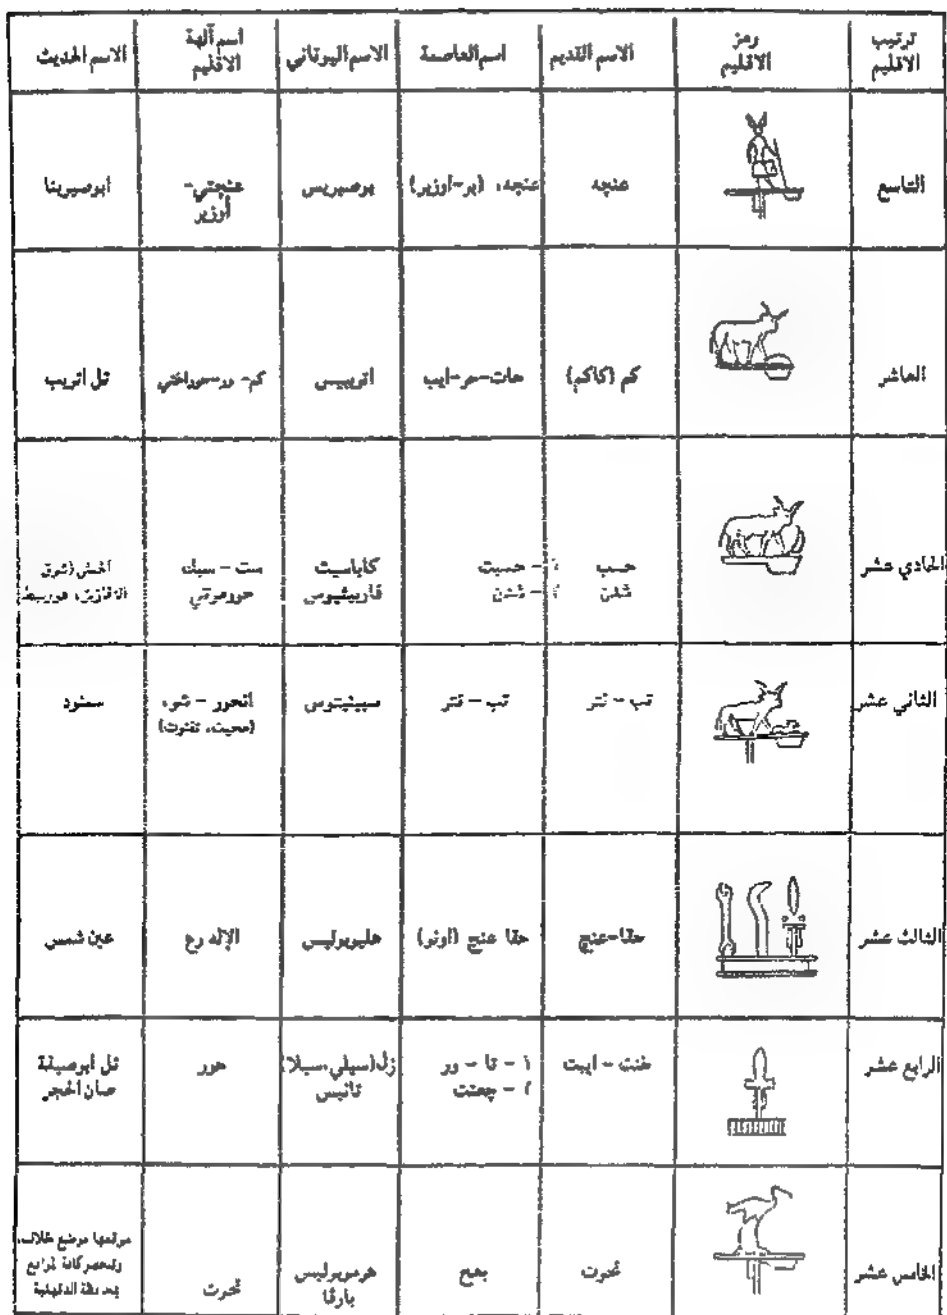 ترتيب الاقليم | رمز الاقليم | الاسم القديم | اسم العاصمة | الاسم اليوناني | اسم آلهة الاقليم | الاسم الحديث
التاسع | عنجه | عنجه، (بر-أوزير) | بوصيريس | عنجتي- أوزير | ابوصيربنا
العاشر | كم (كاكم) | حات-حر-ايب | اتريبيس | كم- ور-حوراختي | تل اتريب
الحادي عشر | حسب | ١ - حسبت | كاباسيت | ست - سبك
شدن | ٢ - شدن | فاربيثيوس | حورمرتي | الزقازيق، هوربيط
الثاني عشر | تب - نتر | تب - نتر | سبينيتوس | انحور - شو، | سمنود
(محيت، تفنوت)
الثالث عشر | حقا-عنج | حقا عنج (اونو) | هليوبوليس | الإله رع | عين شمس
الرابع عشر | خنت - ايبت | ١ - تا - ور | زل(سيلي،سيلا) | حور | تل ابوصيفة
٢ - جعنت | تانيس | صان الحجر
الخامس عشر | تحوت | بعح | هرموبوليس بارفا | تحوت | موقعها موضع خلاف،
بمحافظة الدقهلية